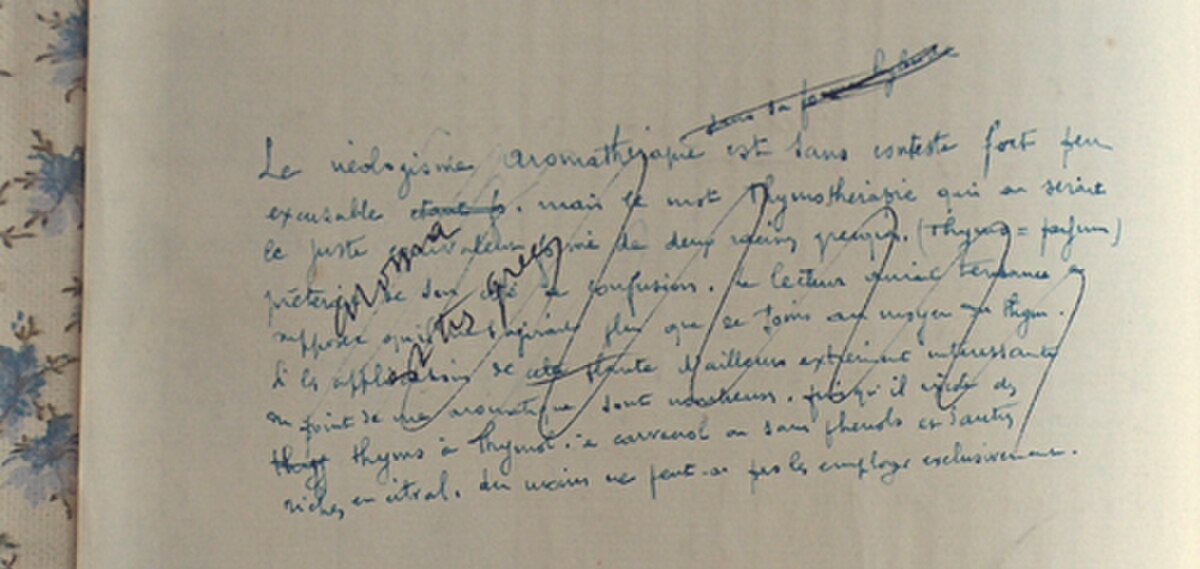 dans sa forme hybride
Le néologisme aromathérapie est sans conteste fort peu
excusable étant . mais le mot Thymothérapie qui en serait
le juste équivalent formé de deux racines grecques. (Thyms = parfum)
prêterait de son côté à confusion. Le lecteur aurait tendance à
supposer qu'il ne s'agirait plus que de soins au moyen du thym.
Si les applications de cette plante d'ailleurs extrêmement intéressante
au point de vue aromatique sont nombreuses. puisqu'il existe des
thyms à thymol. à carvacrol ou sans phénols et d'autres
riches en citral. du moins ne peut-on pas les employer exclusivement.